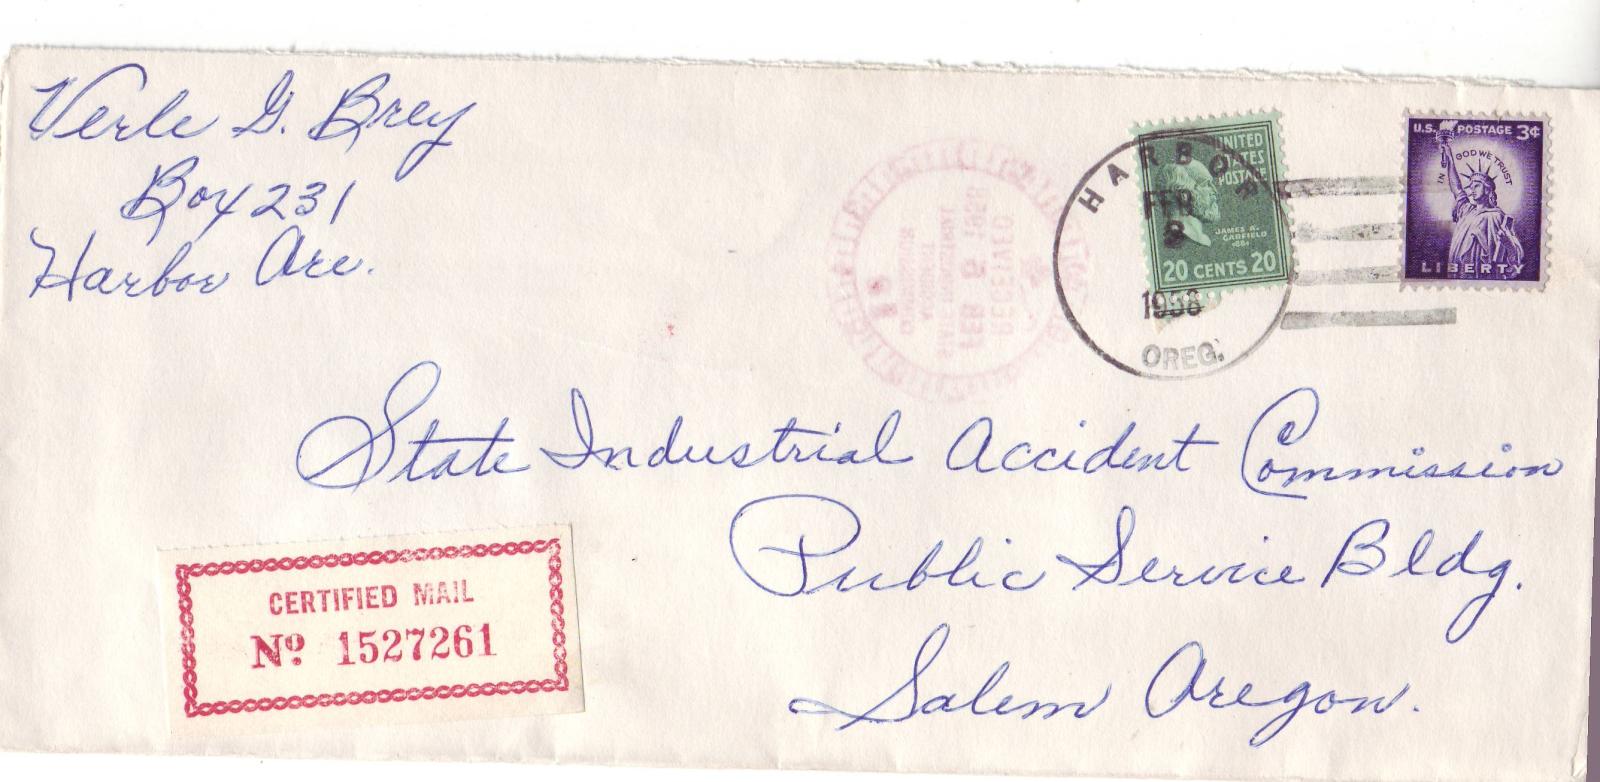 Verle G. Brey
Box 231
Harbor Ore.
HARBOR
FEB
1958
OREG.
UNITED
STATES
POSTAGE
JAMES A.
GARFIELD
1881
20 CENTS 20
U.S. POSTAGE 3¢
IN GOD WE TRUST
LIBERTY
RECEIVED
FEB 5 1958
STATE INDUSTRIAL
ACCIDENT
COMMISSION
State Industrial Accident Commission
Public Service Bldg.
Salem Oregon.
CERTIFIED MAIL
No. 1527261